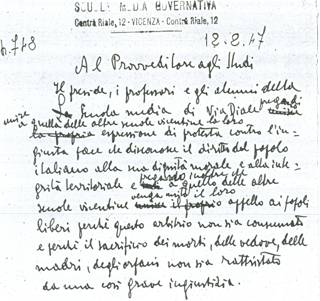 SCUOLA MEDIA GOVERNATIVA
Contrà Riale, 12 - VICENZA - Contrà Riale, 12
12.2.47
Al Provveditore agli Studi
Il preside, i professori e gli alunni della
Scuola media di Via Riale pregano
unire
a quella delle altre scuole vicentine la loro
la propria espressione di protesta contro l'in-
giusta pace che disconosce il diritto del popolo
italiano alla sua dignità morale e alla inte-
grità territoriale e
pregando inoltre che
a quello delle altre
venga unito il loro
scuole vicentine unire il proprio appello ai popoli
liberi perché questo arbitrio non sia consumato
e perché il sacrificio dei morti, delle vedove, delle
madri, degli orfani non sia rattristato
da una così grave ingiustizia.